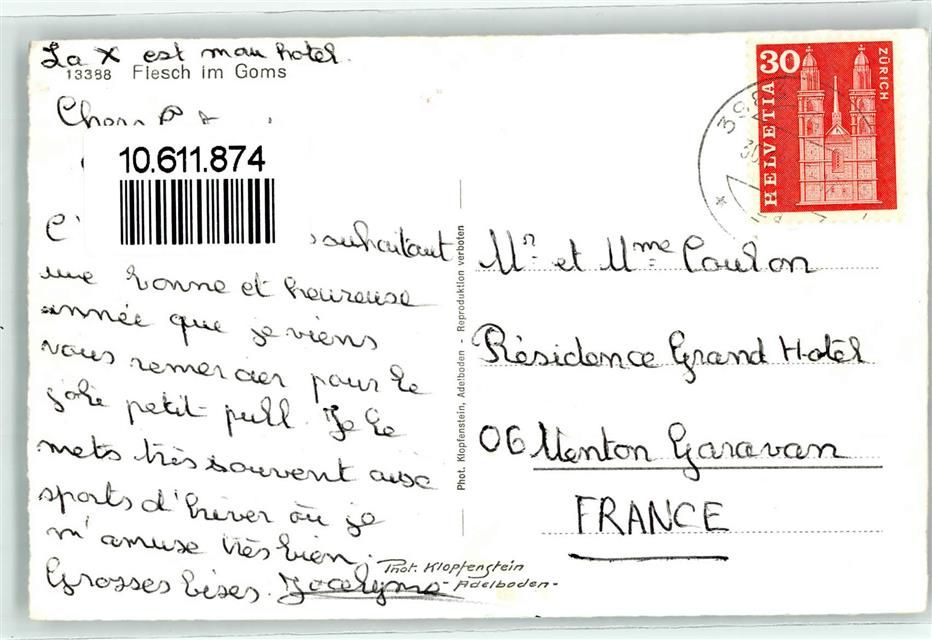 La X est mon hotel.
13388 Fiesch im Goms
10.611.874
souhaitant
une bonne et heureuse
année que je viens
vous remercier pour le
joli petit pull. Je le
mets très souvent aux
sports d'hiver où je
m'amuse très bien.
Grosses bises. Jocelyne
Phot. Klopfenstein
Adelboden -
Phot. Klopfenstein, Adelboden - Reproduktion verboten
30
ZÜRICH
HELVETIA
Mr et Mme Coulon
Résidence Grand Hotel
06 Menton Garavan
FRANCE